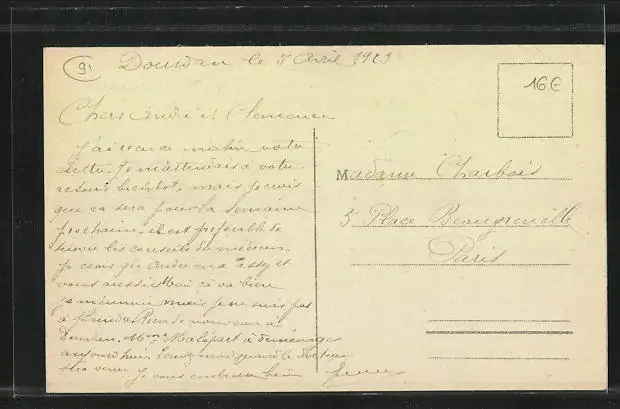 91
Dourdan le 5 Avril 1923
16 €
Chers André et Clemence
j'ai reçu ce matin votre
lettre. Je m'attendais à votre
retour bientot, mais je vois
que ça sera pour la semaine
prochaine, il est préférable de
suivre les conseils du médecin.
Je crois qu'André en a assez et
vous aussi. Moi ça va bien
je m'ennuie mais je ne suis pas
à plaindre. Rien de nouveau à
Dourdan. Mme Malépart a déménagé
aujourd'hui. quand le Docteur
sera venu. Je vous embrasse bien
Madame Charbois
5 Place Beaugrenelle
Paris